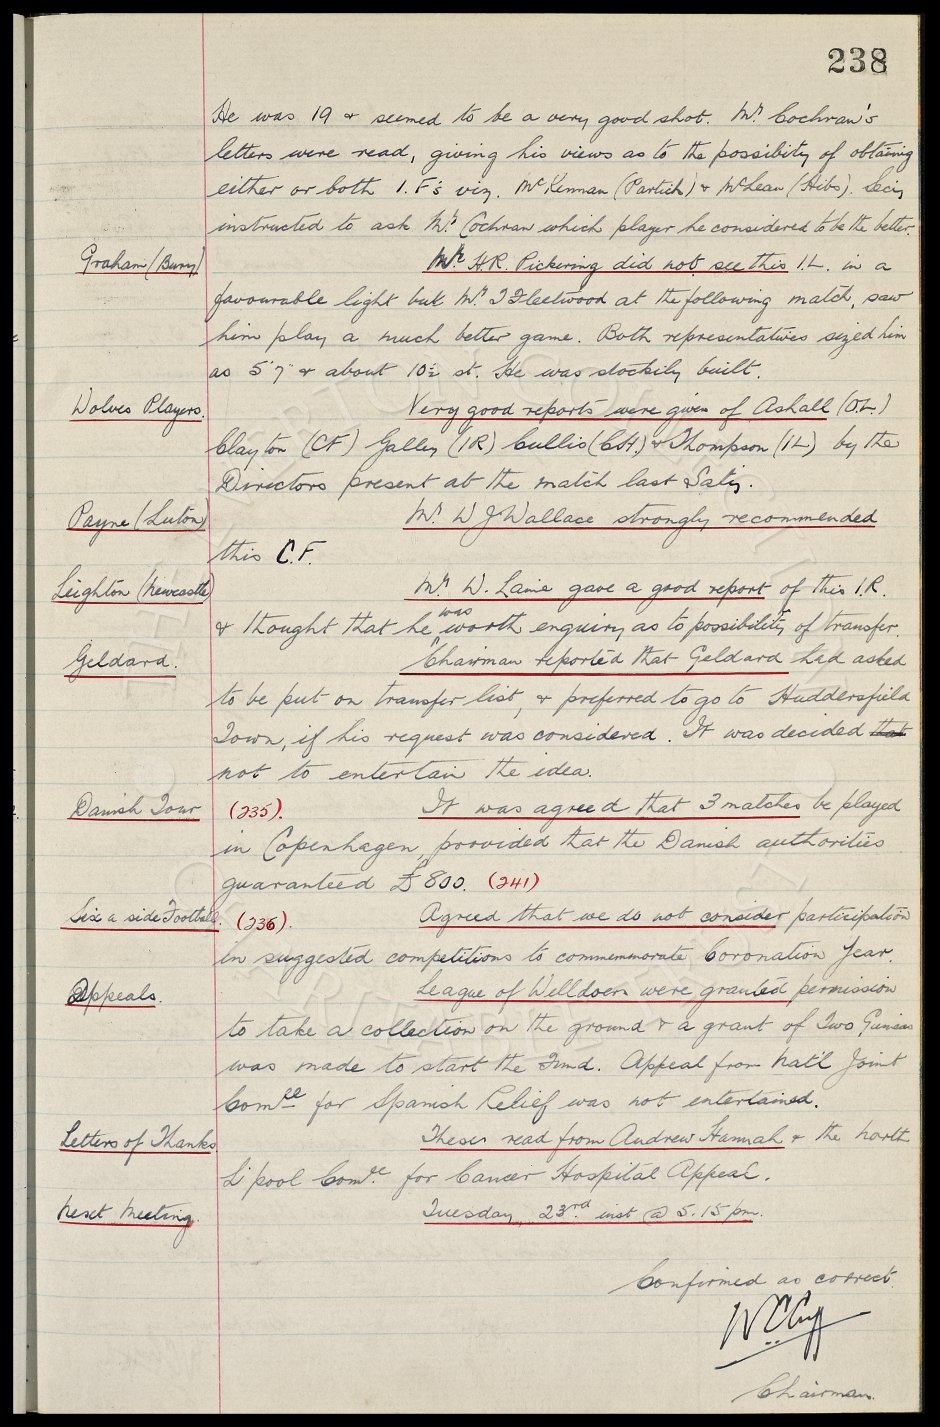 238
He was 19 & seemed to be a very good shot. Mr. Cochran's
letters were read, giving his views as to the possibity of obtaining
either or both I.F's viz, McKennan (Partick) & McLean (Hibs). Secy
instructed to ask Mr. Cochran which player he considered to be the better.
Graham (Bury) Mr. H.R. Pickering did not see this I.L. in a
favourable light but Mr. J Fleetwood at the following match, saw
him play a much better game. Both representatives sized him
as 5'7" & about 10½ st. He was stockily built.
Wolves Players. Very good reports were given of Ashall (O.L.)
Clayton (CF) Galley (IR) Cullis (C.H.) & Thompson (IL) by the
Directors present at the match last Satdy.
Payne (Luton) Mr. W J Wallace strongly recommended
this C.F.
Leighton (Newcastle) Mr. W. Laine gave a good report of this I.R.
& thought that he was worth enquiry as to possibility of transfer.
Geldard. Chairman reported that Geldard had asked
to be put on transfer list, & preferred to go to Huddersfield
Town, if his request was considered. It was decided that
not to entertain the idea.
Danish Tour (235). It was agreed that 3 matches be played
in Copenhagen, provided that the Danish authorities
guaranteed £800. (241)
Six a side Football. (236). Agreed that we do not consider participation
in suggested competitions to commemmorate Coronation Year.
Appeals. League of Welldoers were granted permission
to take a collection on the ground & a grant of Two Guineas
was made to start the Fund. Appeal from Nat'l Joint
Comee for Spanish Relief was not entertained.
Letters of Thanks These read from Andrew Hannah & the North
L'pool Comee. for Cancer Hospital Appeal.
Next Meeting. Tuesday, 23rd inst @ 5.15 pm.
Confirmed as correct.
W C Cuff
Chairman.